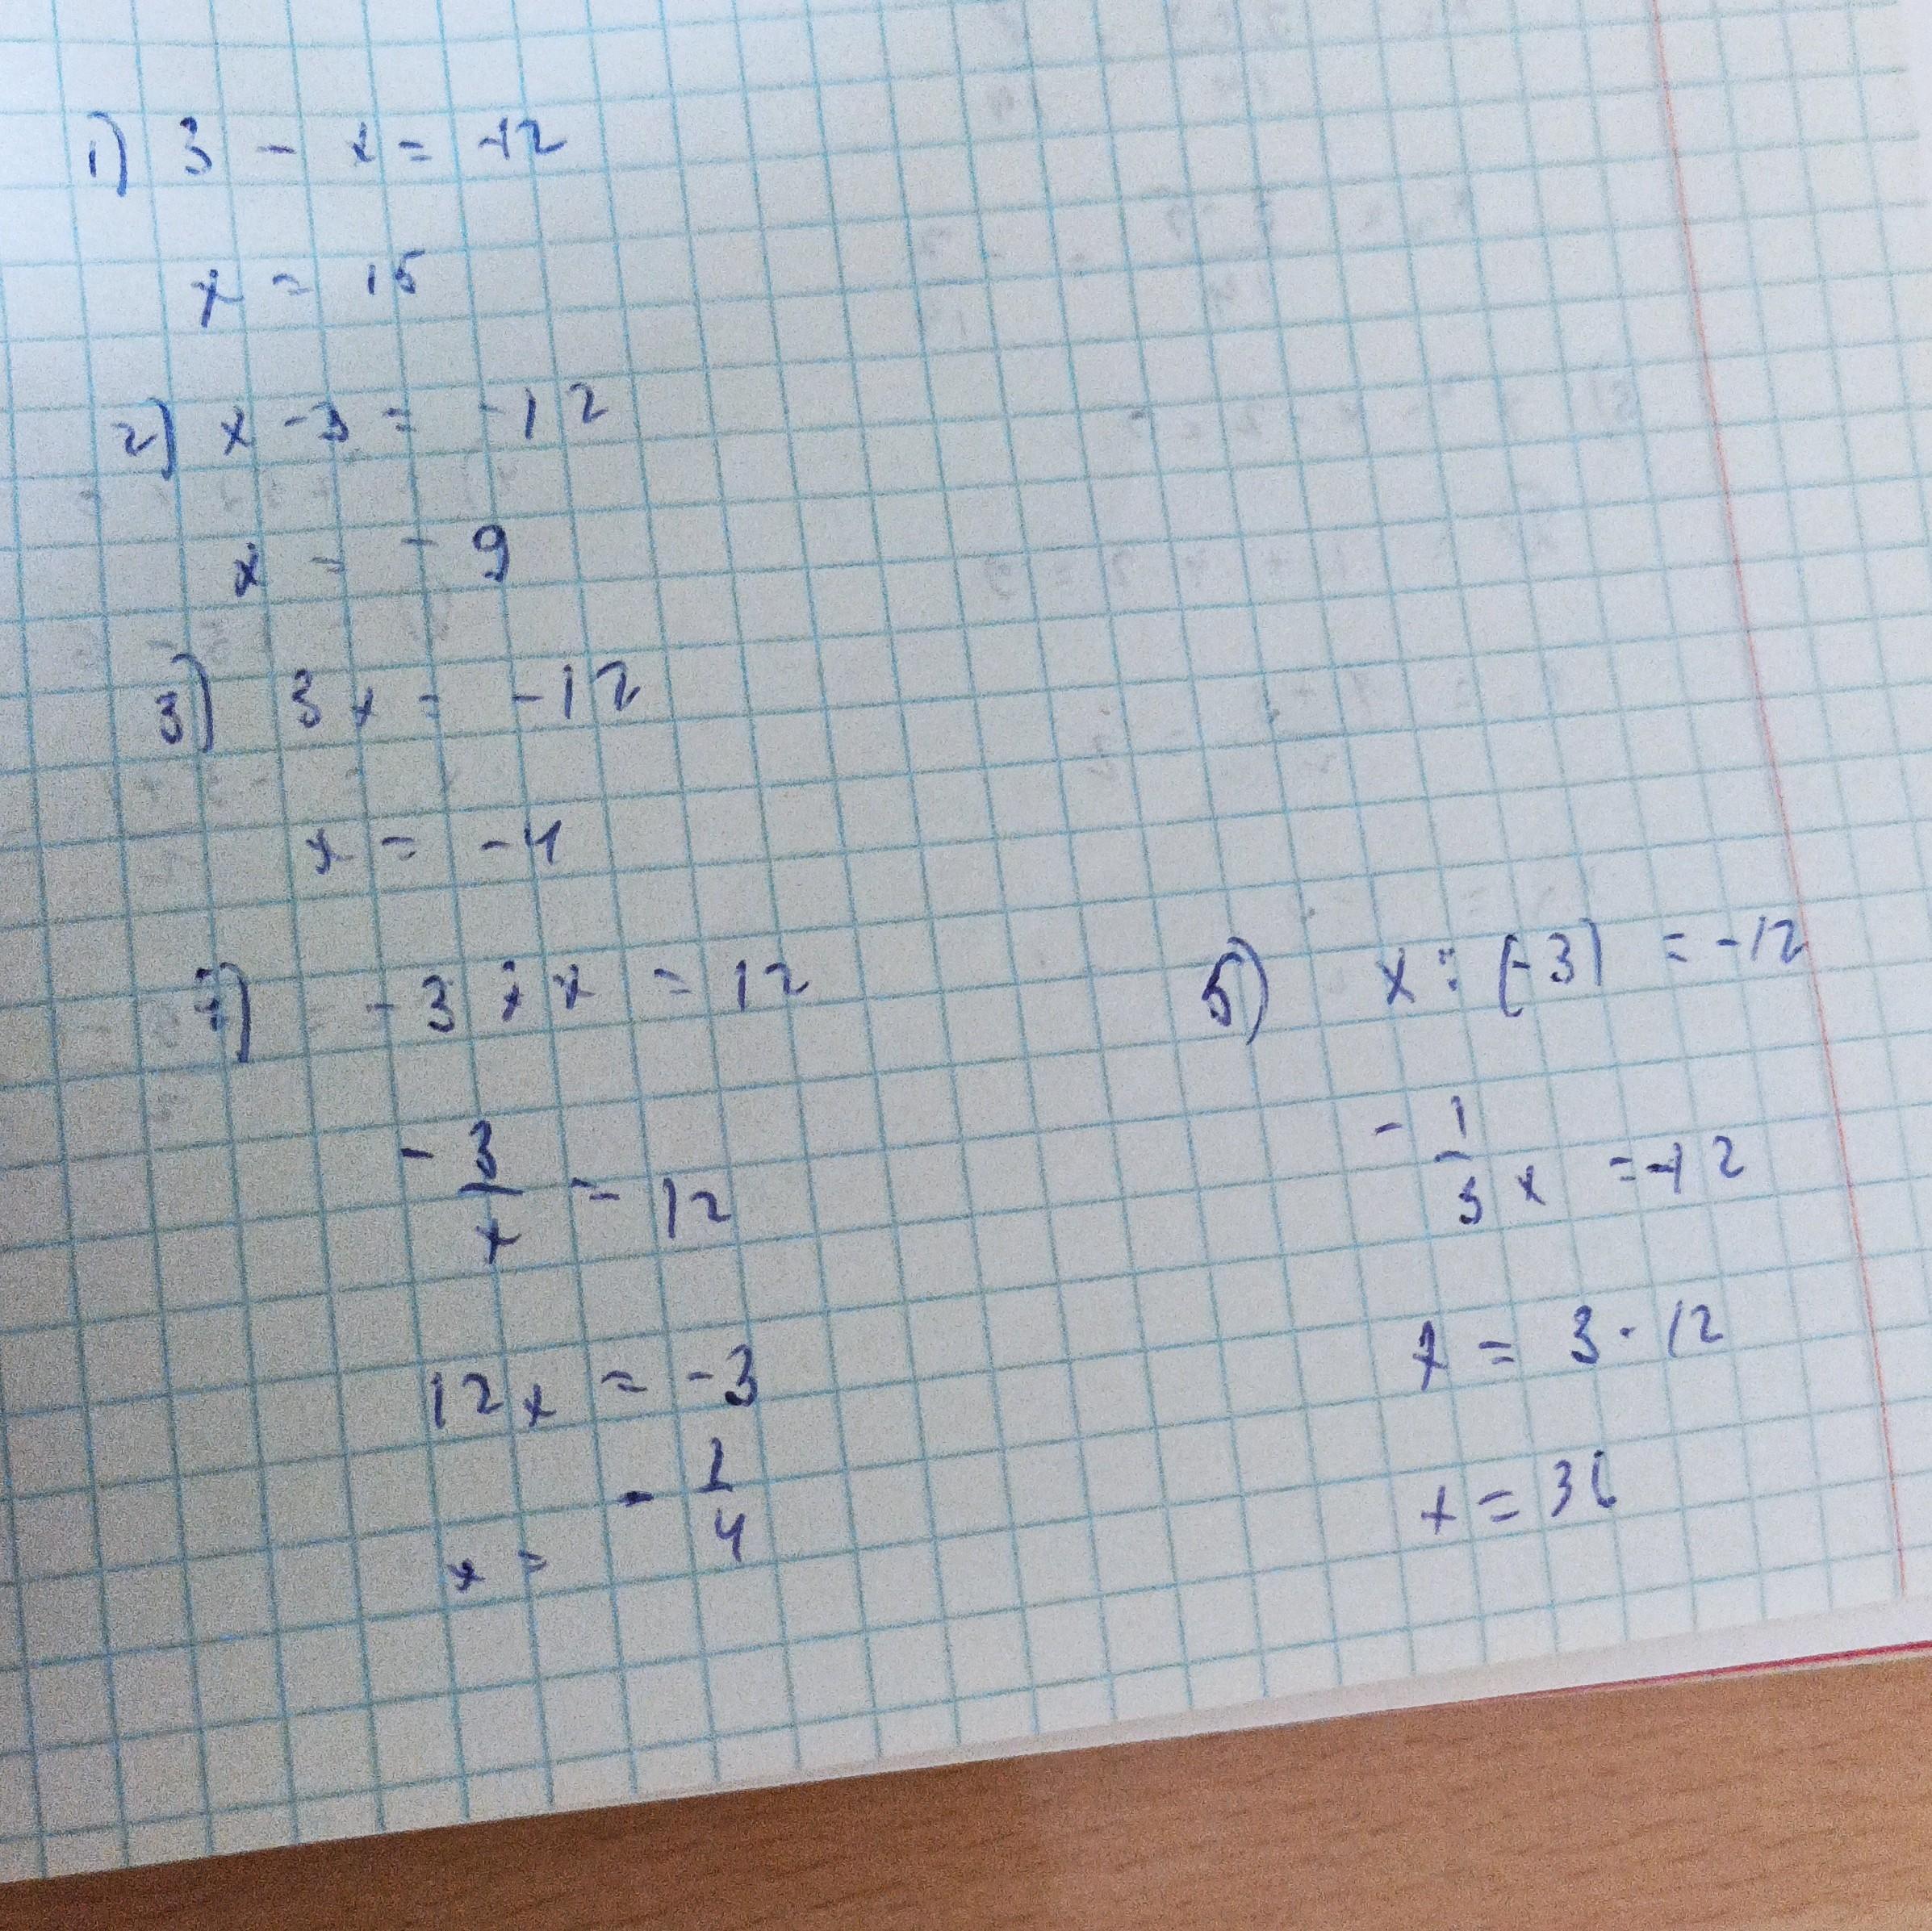 1) 3 - x = -12
x = 15
2) x - 3 = -12
x = -9
3) 3x = -12
x = -4
4) -3 : x = 12
- 3/x = 12
12x = -3
x = - 1/4
5) x : (-3) = -12
- 1/3 x = -12
x = 3 · 12
x = 36